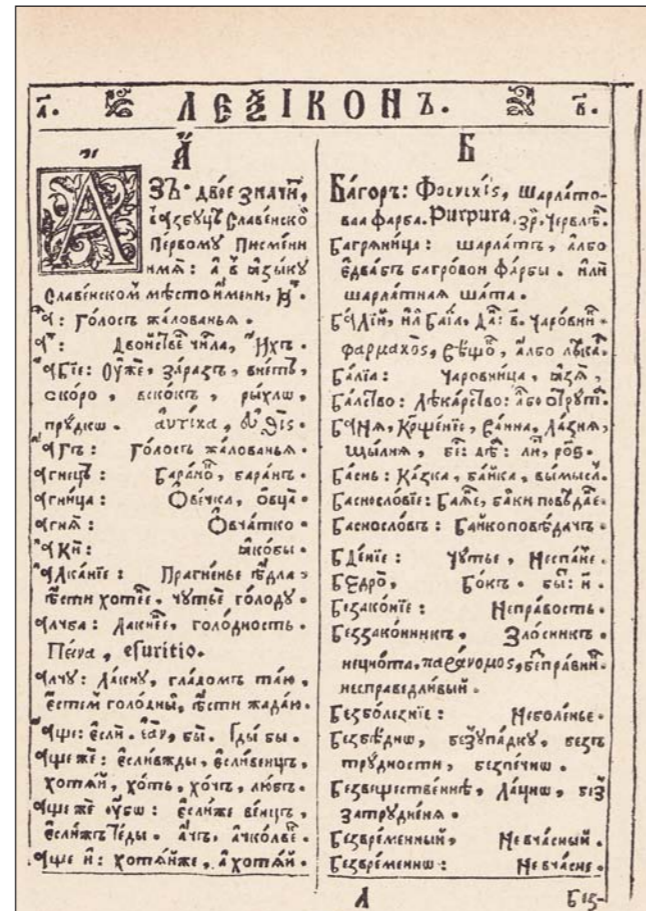 а҃. ЛЕѮІКОНЪ. в҃.
А
АЗЪ· двоє значи́т,
въ а́збуцѣ Славе́нско
Пе́рвому Писмени
имѧ̀: а в̾ ѧзы́ку
Славе́нском мѣсто и́мени, ꙗ҆̀.
а҆̀: Го́лосъ жа́лованьѧ.
а҆: Дво́йстве числа, И҆хъ.
А҆бїе: Оу҆же́, за́разъ, внетъ,
ско́ро, вско́кѣ, ры́хлѡ,
пру́дкѡ. αὐτίκα,
А҆гъ: Го́лосъ жа́лованьѧ.
А҆гнецъ: Бара́нокъ, бара́нъ.
А҆гница: Ове́чка, о҆вца̀
А҆гнѧ̀: Овча́тко.
А҆ки: ѧ҆́кобы.
А҆лка́нїе: Прагне́нье ѣдла,
ѣсти хотѣ́е, чутье́ го́лоду.
А҆лчба: Ла́кнее, голо́дность.
Πείνα, esuritio.
А҆лчу: Ла́кну, гла́домъ та́ю,
Є҆сте́м голо́дны, ѣ́сти жада́ю.
А҆ще: є҆сли. ἐάν, бы. Гды́ бы.
А҆ще же: є҆сли́вжды, є҆сли́венцъ,
хотѧ́й, хо́ть, хо́чъ, лю́бъ.
А҆ще же у҆бѡ: є҆сли́же ве́нцъ,
є҆сли́жъ Ґеды. а́чъ, а́чколве.
А҆ще и: хотѧ́йже, а҆ хотѧ́й.
Б
Ба́горъ: Φοινικίς, шарла́то-
ваѧ фа́рба. Purpura. зр. Червле́.
Багрѧни́ца: шарла́тъ, а́лбо
Є҆два́бъ багро́вои фа́рбы. и́ли
шарла́тнаѧ ша́та.
Ба́лїй, и҆л̾ Ба́їѧ, да: в. чаровни́.
φαρμακός,
Ба́лїа: Чаровни́ца,
Ба́лство: Лѣка́рство: а́бо
Ба́нѧ, Крщє́нїе, Ва́нна, Ла́знѧ,
Баснь: Ка́зка, ба́йка, вы́мысл.
Баснословїе: Ба́же, ба́йки повѣда́е.
Баснослов́ъ: Байкоповѣ́дачъ.
Бде́нїе: Чу́тье, Неспа́не.
Бедро, Бо́къ. бы: и.
Безако́нїе: Непра́вость.
Беззако́нникъ, Зло́сникъ.
нецно́та, παράνομος, бе́праве́.
несправедли́вый.
Безболе́знїе: Неболе́нье.
Безбѣ́днѡ, безупа́дку, безъ
тру́дности, безпечнѡ.
Безвещественнѣ, Ла́цнѡ, без̾
затрудне́нѧ.
Безвре́менный, Невча́сный.
Безвре́меннѡ: Невча́сне.
А Без-